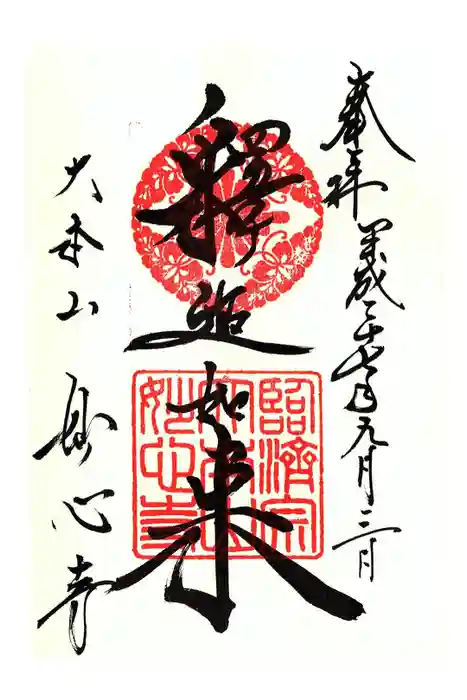 奉拝 平成二十七年元月三日
釋迦如来
大本山 妙心寺
臨濟宗
妙心寺